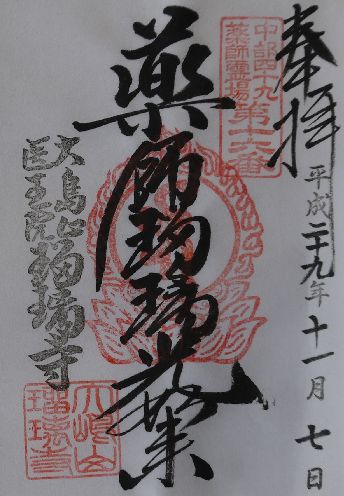 奉拝
平成二十九年十一月七日
中部四十九
薬師霊場
第十六番
薬師瑠璃光如来
大嶋山
医王院瑠璃寺
大嶋山
瑠璃寺